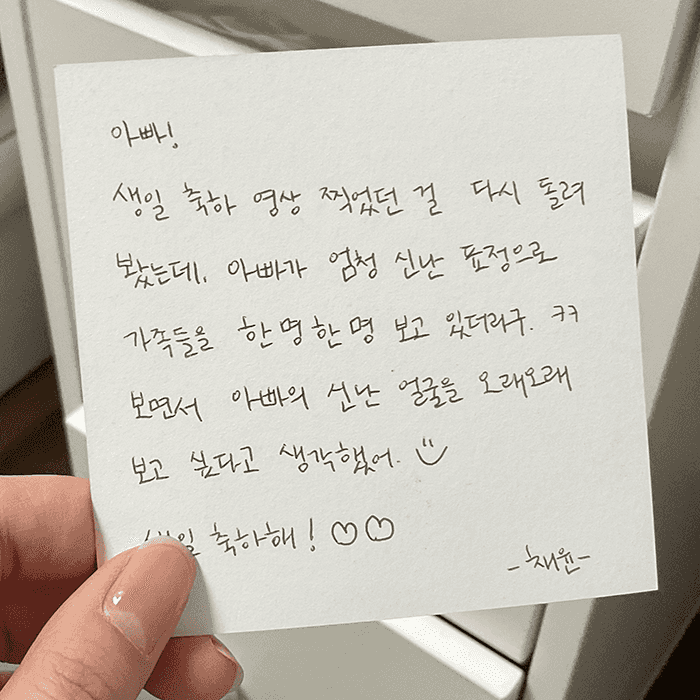 아빠!
생일 축하 영상 찍었던 걸 다시 돌려
봤는데, 아빠가 엄청 신난 표정으로
가족들을 한명한명 보고 있더라구. ㅋㅋ
보면서 아빠의 신난 얼굴을 오래오래
보고 싶다고 생각했어.
생일 축하해! ♡♡
-채윤-